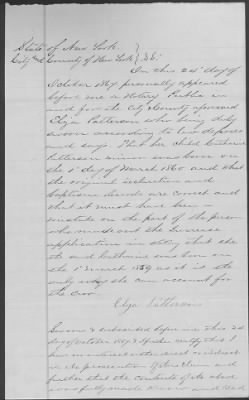 State of New York
City & County of New York } S.S.
On this 24th day of
October 1867 personally appeared
before me a Notary Public in
and for the City & County aforesaid
Eliza Patterson who being duly
sworn according to law deposes
and says That her child Catharine
Patterson minor was born on
the 1st day of March 1860 and that
the original declaration and
Baptism thereto are correct and
that it must have been a
mistake on the part of the person
who made out the Increase
application in stating that she
the said Catharine was born on
the 1st March 1859 as it is the
only way she can account for
the error
Eliza Patterson
Sworn & subscribed before me this 24
day of October 1867 & I further certify that I
have no interest either direct or indirect
in the prosecution of this claim and
further that the contents of the above
were fully made known and read